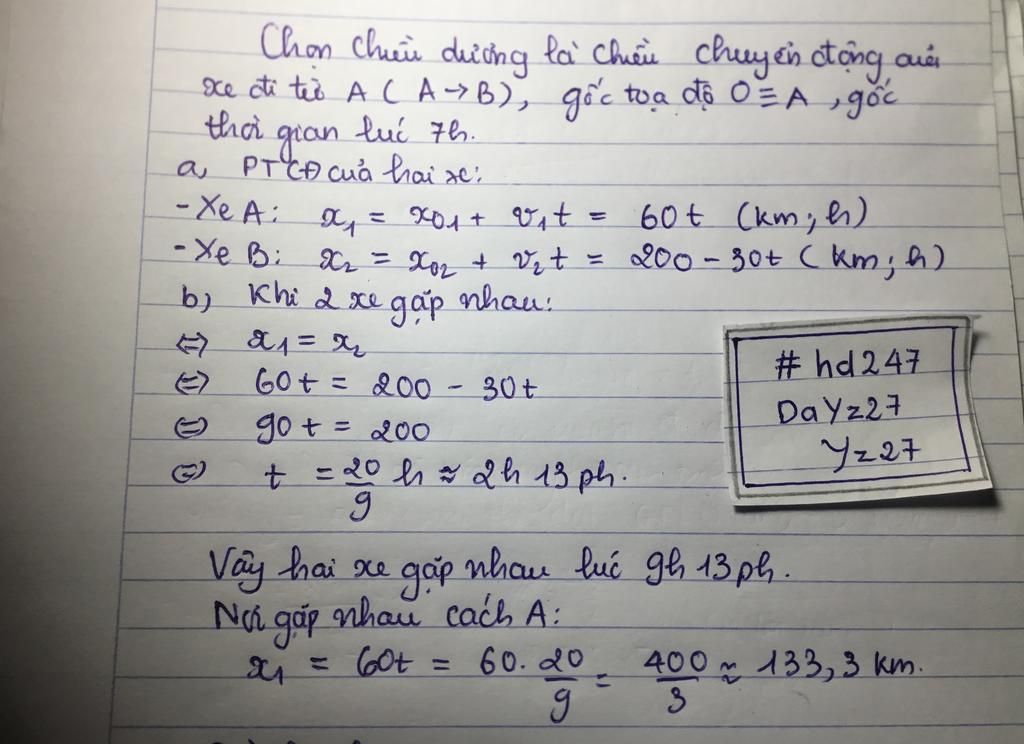 Chọn chiều dương là chiều chuyển động của
xe đi từ A (A→B), gốc toạ độ O≡A, gốc
thời gian lúc 7h.
a, PTCĐ của hai xe:
- Xe A: x₁ = x₀₁ + v₁t = 60t (km; h)
- Xe B: x₂ = x₀₂ + v₂t = 200 - 30t (km; h)
b, Khi 2 xe gặp nhau:
⇔ x₁ = x₂
⇔ 60t = 200 - 30t
⇔ 90t = 200
⇔ t = 20/9 h ≈ 2h 13 ph.
Vậy hai xe gặp nhau lúc 9h 13 ph.
Nơi gặp nhau cách A:
x₁ = 60t = 60. 20/9 = 400/3 ≈ 133,3 km.
# hd247
DaYz27
Yz27